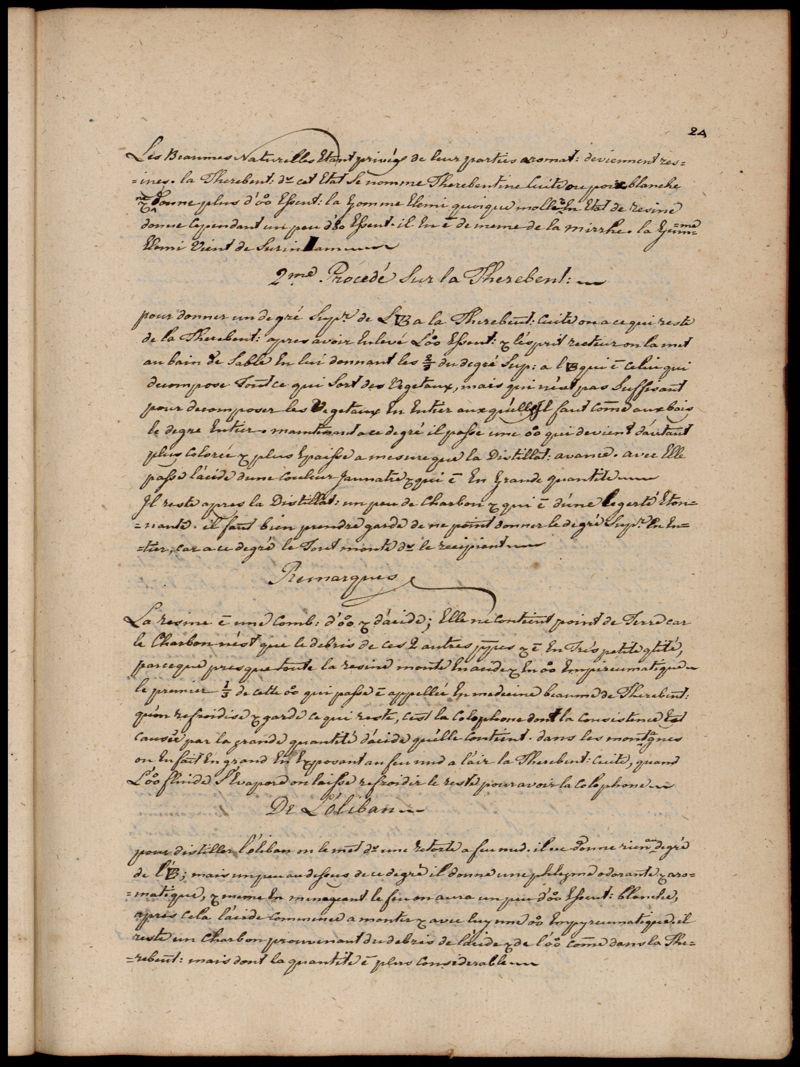 24
Les Beaumes Naturelles Etant privés de leur parties aromat: deviennent res=
=ines. la Therebent: ds cet Etat se nomme Therebentine Cuite ou poix blanche
donne plus d'oo Essent: la Gomme Elemi quoique molle & En Etat de resine
donne Cependant un peu d'oo Essent: il En ē de meme de la mirrhe. la Gomme
Elemi Vient de Surinam
2me. Procedé Sur la Therebent:
pour donner un degré Supr. de L'B a la Therebent: Cuite on a ce qui reste
de la Therebent: apres avoir Enlevé L'oo Essent: & l'ésprit recteur on la met
au bain de Sable En lui donnant les 2/3 du degré Sup: a l'B qui ē Celui qui
decompose Tout ce qui Sort des Vegetaux, mais qui n'ést pas Suffisant
pour decomposer les Vegetaux En Entier auxquels Il faut come aux bois
le degre Entier. maintenant a ce degré il passe une oo qui devient d'autant
plus Colorée & plus Epaisse a mesure que la Distillat: avance. avec Elle
passe l'acide d'une Couleur Jaunatre & qui ē En Grande quantité
Il reste apres la Distillat: un peu de Charbon & qui ē d'une legerté Eton=
=nante. il faut bien prendre garde de ne point donner le degré Supr. En En=
=tier, car a ce degré le Tout monte ds le recipient
Remarques
La resine ē une Comb: d'oo & d'acide; Elle ne Contient point de Terre car
le Charbon n'ést que le debris de ces 2 autres ppes & ē En Trés petite qtité,
parceque presque toute la resine monte En acide & En oo Empireumatique
le premier 1/3 de cette oo qui passe ē appellée En medecine beaume de Therebent.
qu'on refroidise & garde ce qui reste, c'est la Colophone dont la Consistence Est
Causée par la grande quantité d'acide qu'elle Contient. dans les montagnes
on En fait En grand En Exposant au feu nud a l'air la Therebent: Cuite, quand
L'oo fluide S'Evapore on laisse refroidir le reste pour avoir la Colophone
De L'oliban
pour distiller l'oliban on le met ds une retorte a feu nud. il ne donne rien au degré
de l'B; mais un peu au dessus de ce degré il donne une phlegme odorante & aro=
=matique, & meme En menageant le feu on aura un peu d'oo Essent: blanche,
après cela l'acide Commence a monter & avec luy une oo Empyreumatique. il
reste un Charbon prouvenant du debris de l'acide & de l'oo come dans la The=
=rebent: mais dont la quantité ē plus Considerable